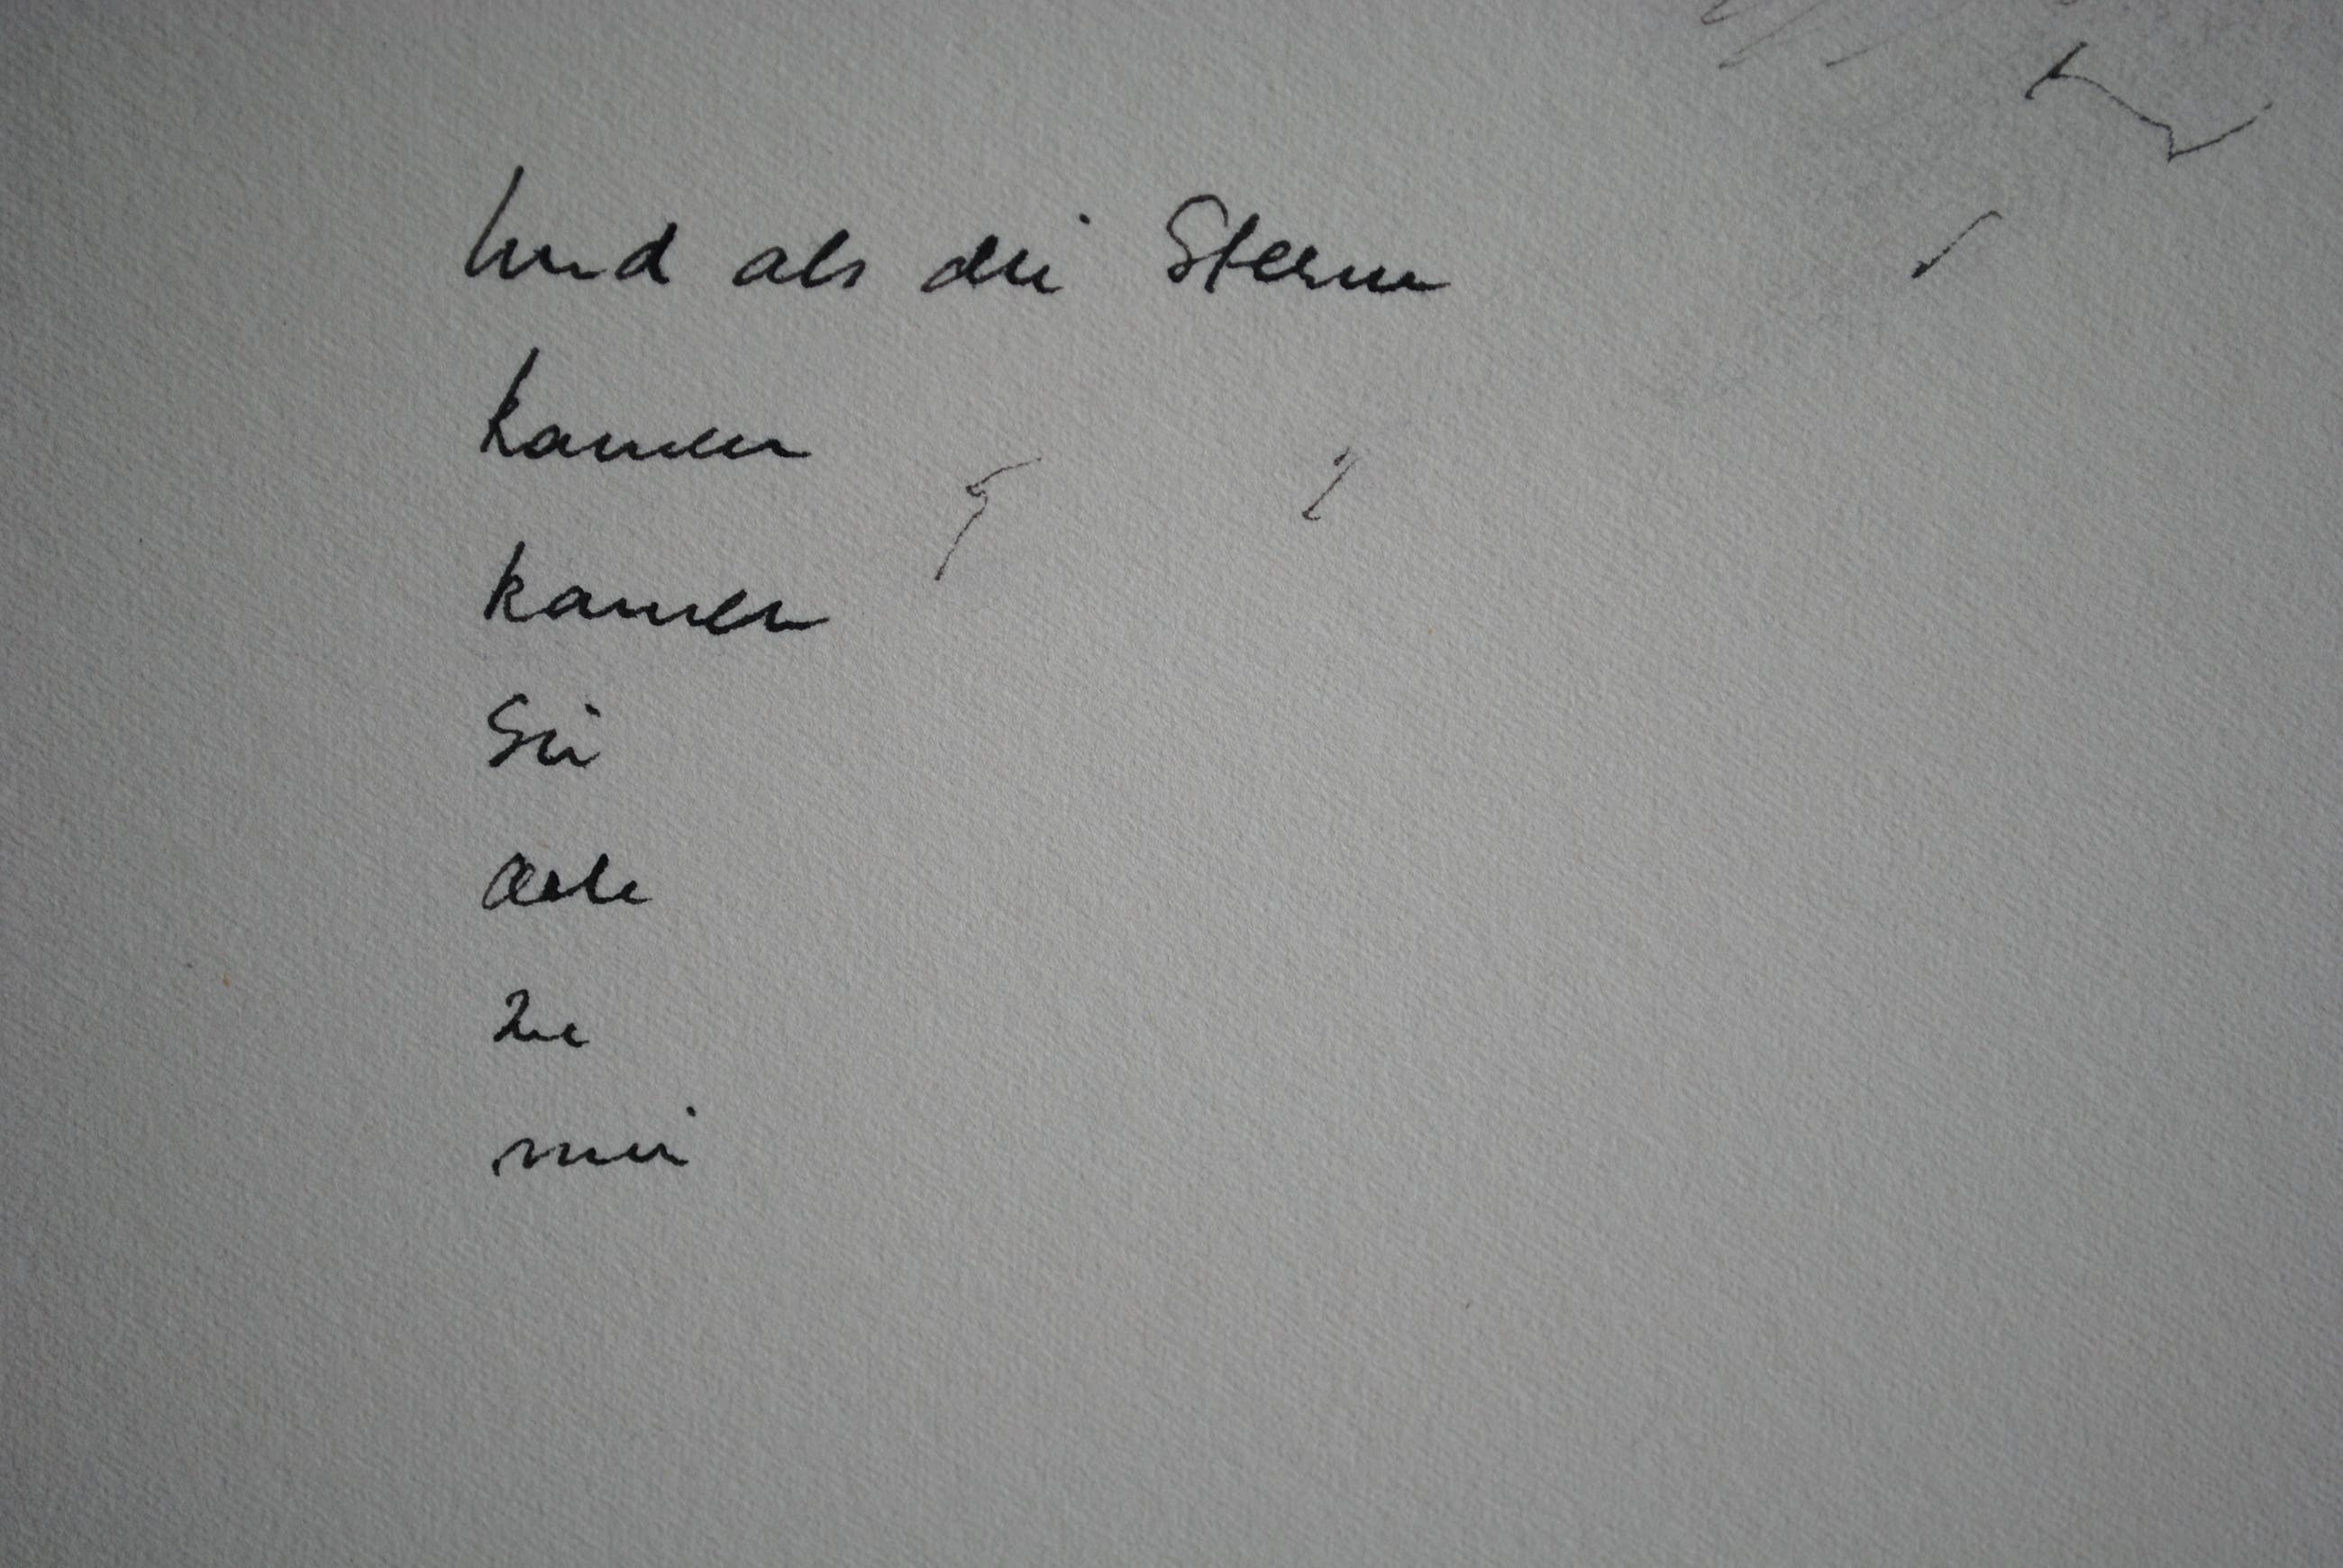 Und als die Sterne
kamen
kamen
Sie
alle
zu
mir